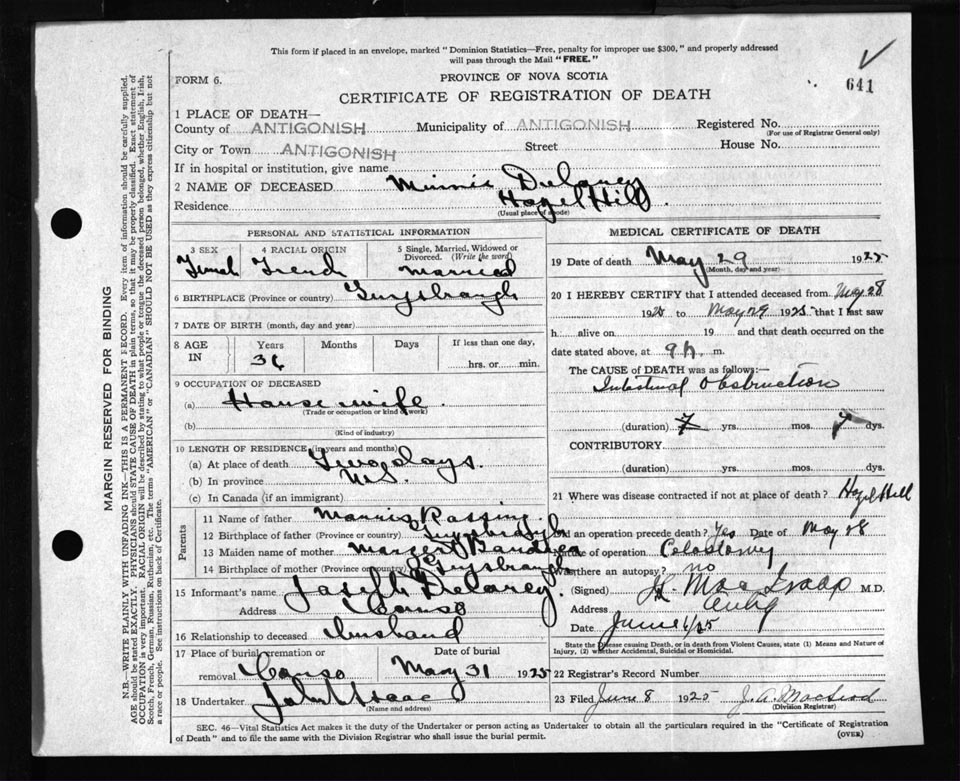 This form if placed in an envelope, marked "Dominion Statistics—Free, penalty for improper use $300," and properly addressed
will pass through the Mail "FREE."
641
FORM 6.
PROVINCE OF NOVA SCOTIA
CERTIFICATE OF REGISTRATION OF DEATH
1 PLACE OF DEATH—
County of ANTIGONISH Municipality of ANTIGONISH Registered No.
(For use of Registrar General only)
City or Town ANTIGONISH Street House No.
If in hospital or institution, give name
2 NAME OF DECEASED Minnie Delaney
Residence Hazel Hill
(Usual place of abode)
PERSONAL AND STATISTICAL INFORMATION
3 SEX 4 RACIAL ORIGIN 5 Single, Married, Widowed or
Divorced. (Write the word)
Femal French married
6 BIRTHPLACE (Province or country) Guysbraugh
7 DATE OF BIRTH (month, day and year)
8 AGE IN Years Months Days If less than one day,
36 hrs. or min.
9 OCCUPATION OF DECEASED
(a) House wife
(Trade or occupation or kind of work)
(b)
(Kind of industry)
10 LENGTH OF RESIDENCE (in years and months)
(a) At place of death Two days.
(b) In province N.S.
(c) In Canada (if an immigrant)
Parents
11 Name of father
12 Birthplace of father (Province or country)
13 Maiden name of mother
14 Birthplace of mother (Province or country) Guysbraugh
15 Informant's name Joseph Delaney
Address Canso
16 Relationship to deceased husband
17 Place of burial, cremation or Date of burial
removal Canso May 31 1925
18 Undertaker John Isaac
(Name and address)
MEDICAL CERTIFICATE OF DEATH
19 Date of death May 29 1925
(Month, day and year)
20 I HEREBY CERTIFY that I attended deceased from May 28
1925 to May 29 1925 that I last saw
h alive on 19 and that death occurred on the
date stated above, at 9 m.
The CAUSE of DEATH was as follows:—
Intestinal Obstruction
(duration) yrs. mos. 7 dys.
CONTRIBUTORY
(duration) yrs. mos. dys.
21 Where was disease contracted if not at place of death? Hazel Hill
Did an operation precede death? Yes Date of May 28
of operation Colostomy
Was there an autopsy? no
(Signed) M.D.
Address Antig
Date June 6/25
State the Disease causing Death, or in death from Violent Causes, state (1) Means and Nature of
Injury, (2) whether Accidental, Suicidal or Homicidal.
22 Registrar's Record Number
23 Filed June 8 1925 J. A. MacLeod
(Division Registrar)
SEC. 46—Vital Statistics Act makes it the duty of the Undertaker or person acting as Undertaker to obtain all the particulars required in the "Certificate of Registration
of Death" and to file the same with the Division Registrar who shall issue the burial permit.
(OVER)
MARGIN RESERVED FOR BINDING
N.B.—WRITE PLAINLY WITH UNFADING INK—THIS IS A PERMANENT RECORD. Every item of information should be carefully supplied.
AGE should be stated EXACTLY. PHYSICIANS should STATE CAUSE OF DEATH in plain terms, so that it may be properly classified. Exact statement of
OCCUPATION is very important. RACIAL ORIGIN will be described by stating to what people or tongue the deceased person belonged, whether English, Irish,
Scotch, French, German, Russian, Ruthenian, etc. The terms "AMERICAN" or "CANADIAN" SHOULD NOT BE USED as they express citizenship but not
a race or people. See instructions on back of Certificate.